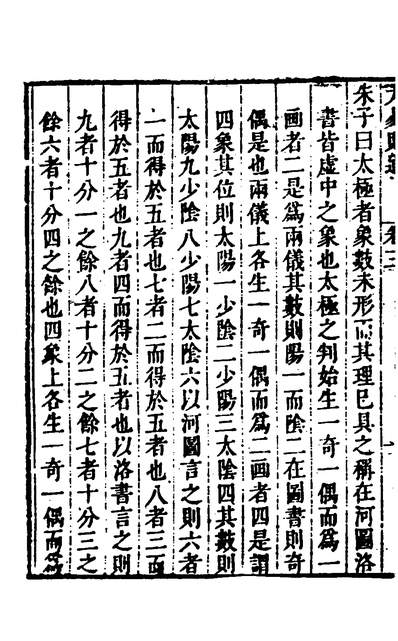 朱子曰太極者象數未形而其理已具之稱在河圖洛
書皆虛中之象也太極之判始生一奇一偶而爲一
画者二是爲兩儀其數則陽一而陰二在圖書則奇
偶是也兩儀上各生一奇一偶而爲二画者四是謂
四象其位則太陽一少陰二少陽三太陰四其數則
太陽九少陰八少陽七太陰六以河圖言之則六者
一而得於五者也七者二而得於五者也八者三而
得於五者也九者四而得於五者也以洛書言之則
九者十分一之餘八者十分二之餘七者十分三之
餘六者十分四之餘也四象上各生一奇一偶而爲